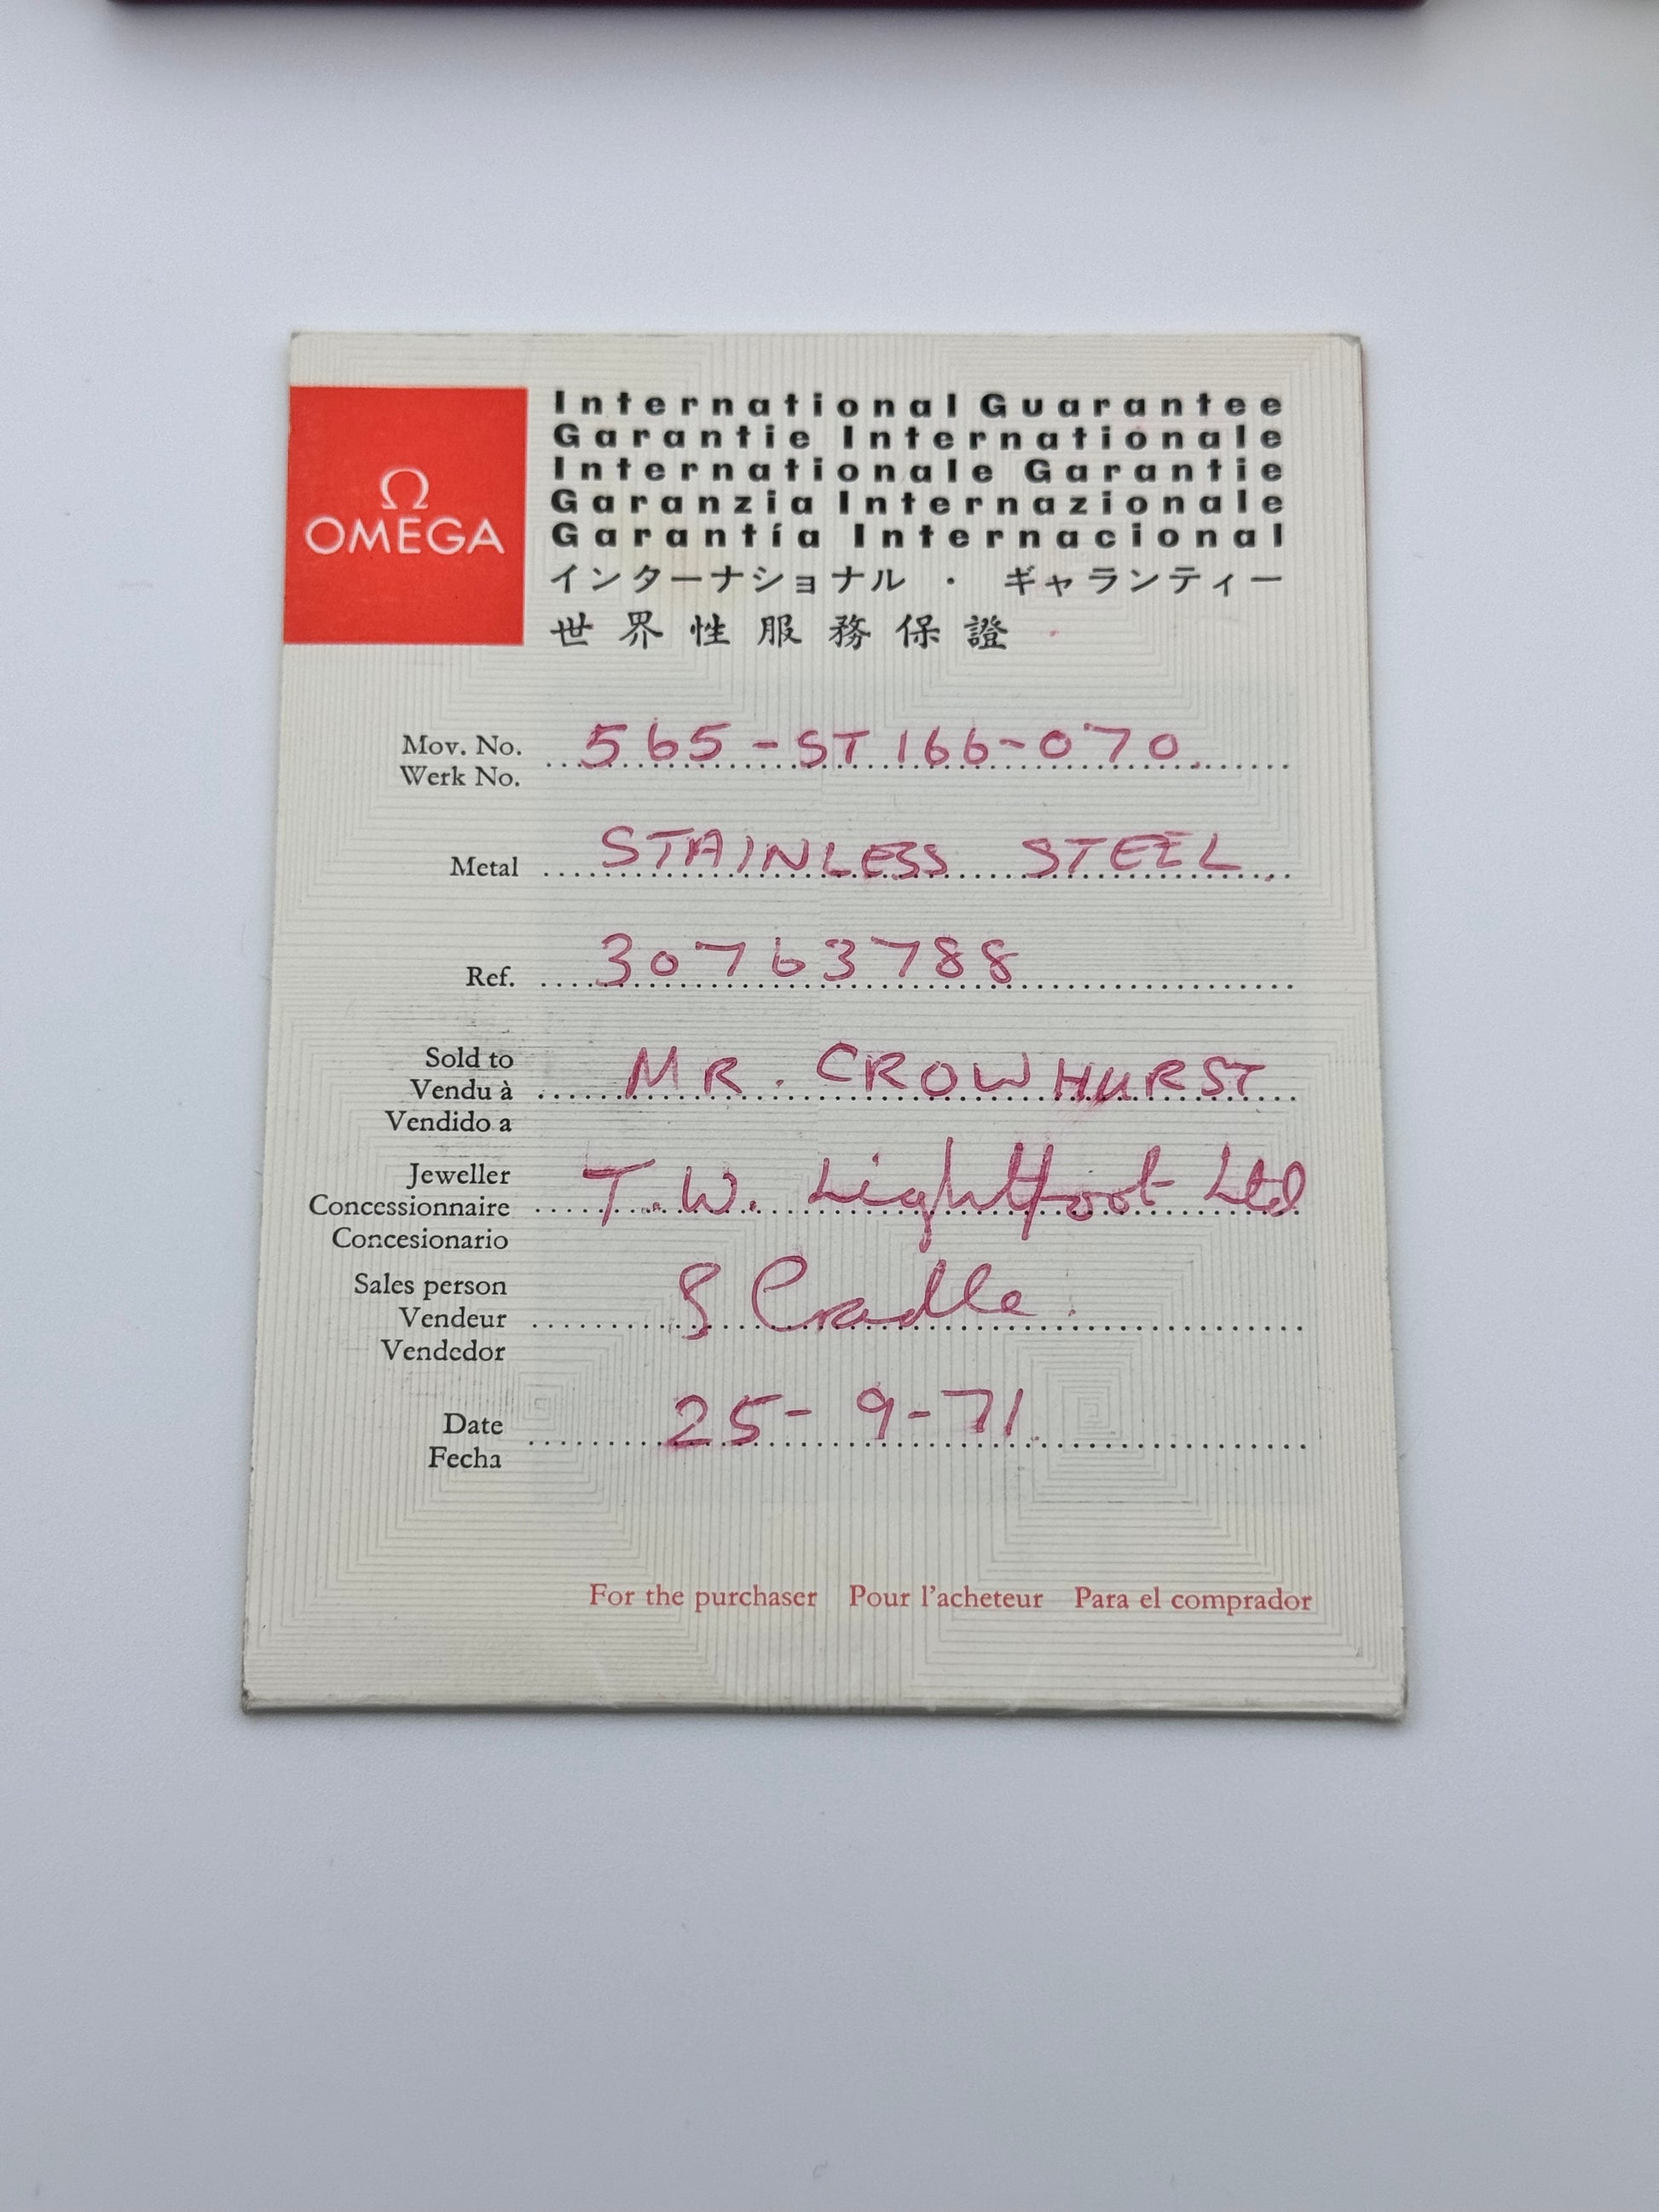 Ω
OMEGA
International Guarantee
Garantie Internationale
Internationale Garantie
Garanzia Internazionale
Garantía Internacional
インターナショナル ・ ギャランティー
世界性服務保證
Mov. No. 565-ST 166-070.
Werk No.
Metal STAINLESS STEEL.
Ref. 30763788
Sold to
Vendu à MR. CROWHURST
Vendido a
Jeweller
Concessionnaire T.W. Lightfoot Ltd
Concesionario
Sales person
Vendeur S Cradle.
Vendedor
Date 25-9-71.
Fecha
For the purchaser Pour l'acheteur Para el comprador